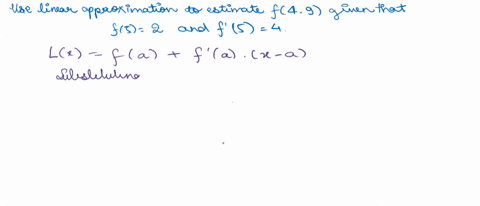 Use linear approximation to estimate f(4.9) given that
f(5) = 2 and f'(5) = 4.
L(x) = f(a) + f'(a) . (x-a)